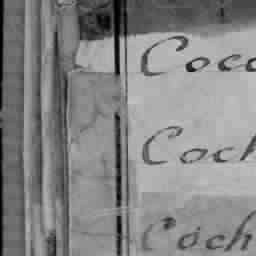 Coc
Coch
Coch